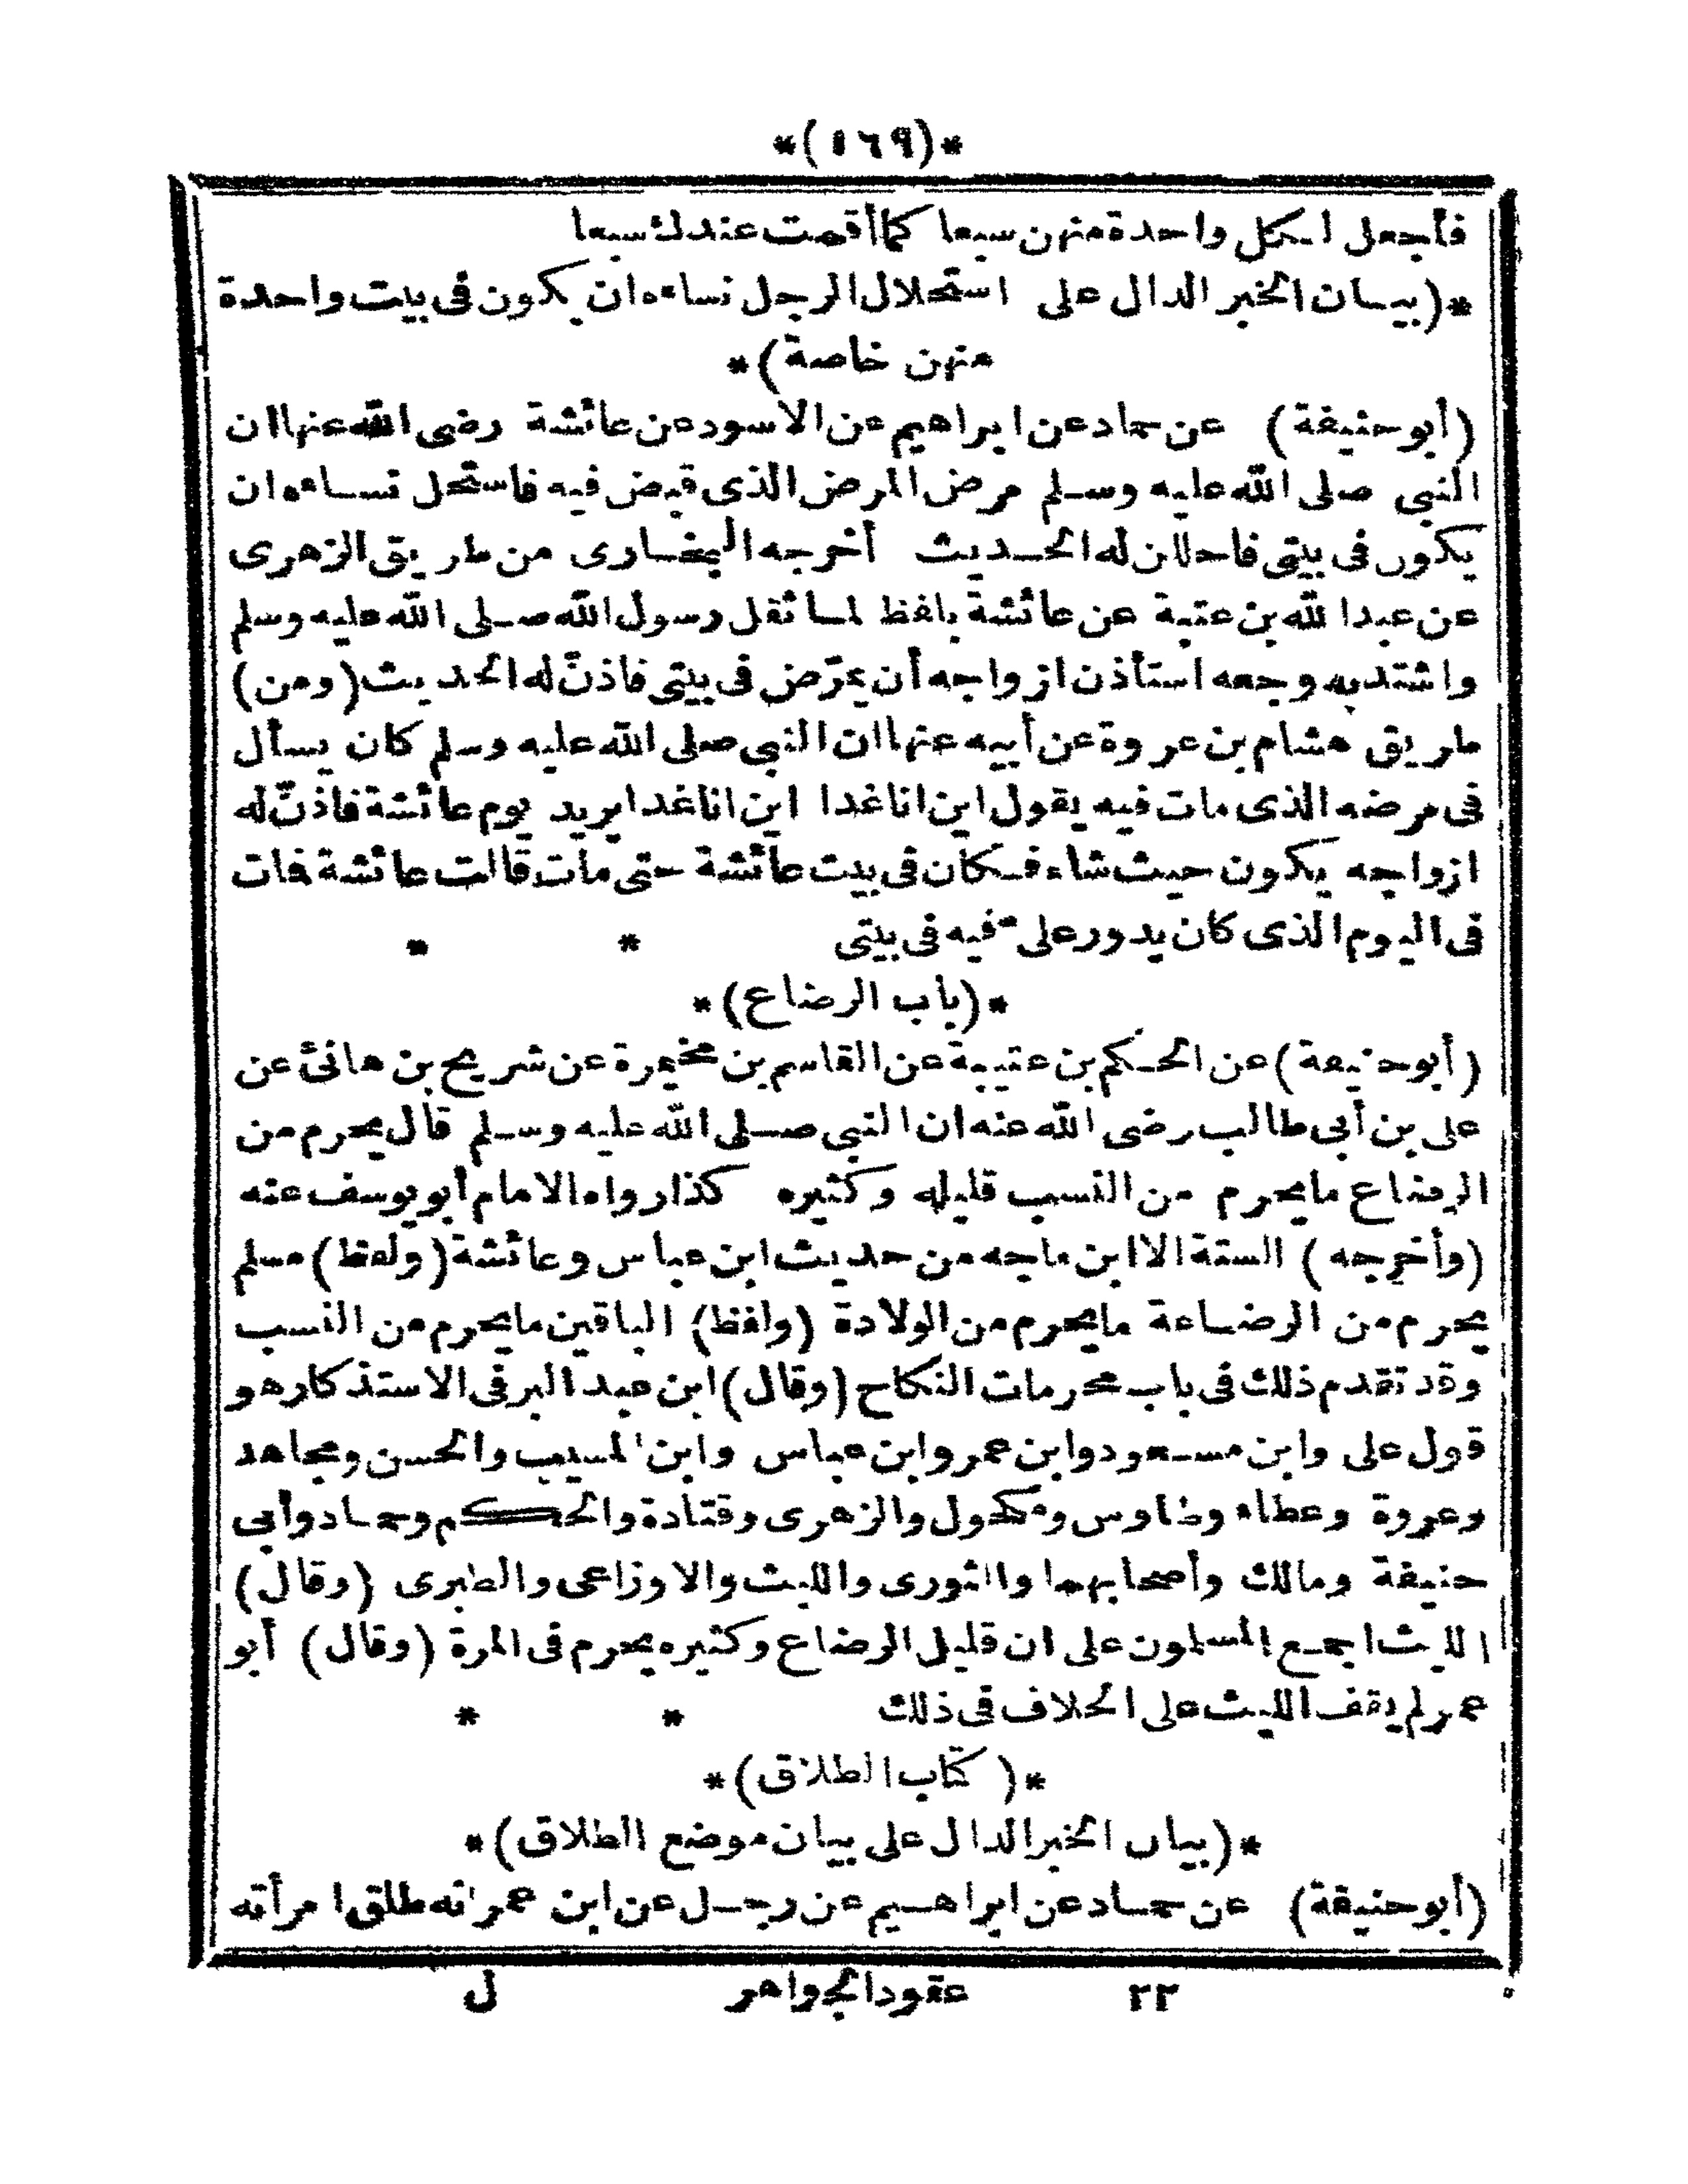 *(١٦٩)*
فأجعل لكل واحدة منهن سبعا كما أقمت عندك سبعا
*(بيان الخبر الدال على استحلال الرجل نساءه ان يكون فى بيت واحدة
منهن خاصة)*
(أبو حنيفة) عن حماد عن ابراهيم عن الاسود عن عائشة رضى الله عنها ان
النبى صلى الله عليه وسلم مرض المرض الذى قبض فيه فاستحل نساءه ان
يكون فى بيتى فاحللن له الحديث أخرجه البخارى من طريق الزهرى
عن عبد الله بن عتبة عن عائشة بلفظ لما ثقل رسول الله صلى الله عليه وسلم
واشتد به وجعه استأذن ازواجه أن يمرّض فى بيتى فاذنّ له الحديث (ومن)
طريق هشام بن عروة عن أبيه عنها ان النبى صلى الله عليه وسلم كان يسأل
فى مرضه الذى مات فيه يقول اين انا غدا اين انا غدا يريد يوم عائشة فاذنّ له
ازواجه يكون حيث شاء فكان فى بيت عائشة حتى مات قالت عائشة فمات
فى اليوم الذى كان يدور على فيه فى بيتى * *
*(باب الرضاع)*
(أبو حنيفة) عن الحكم بن عتيبة عن القاسم بن مخيمرة عن شريح بن هانئ عن
على بن أبى طالب رضى الله عنه ان النبى صلى الله عليه وسلم قال يحرم من
الرضاع ما يحرم من النسب قليله وكثيره كذا رواه الامام أبو يوسف عنه
(وأخرجه) الستة الا ابن ماجه من حديث ابن عباس وعائشة (ولفظ) مسلم
يحرم من الرضاعة ما يحرم من الولادة (ولفظ) الباقين ما يحرم من النسب
وقد تقدم ذلك فى باب محرمات النكاح (وقال) ابن عبد البر فى الاستذكار هو
قول على وابن مسعود وابن عمر وابن عباس وابن المسيب والحسن ومجاهد
وعروة وعطاء وطاوس ومكحول والزهرى وقتادة والحكم وحماد وأبى
حنيفة ومالك وأصحابهما والثورى والليث والاوزاعى والطبرى (وقال)
الليث اجمع المسلمون على ان قليل الرضاع وكثيره يحرم فى المرة (وقال) أبو
عمر لم يقف الليث على الخلاف فى ذلك * *
*(كتاب الطلاق)*
*(بيان الخبر الدال على بيان موضع الطلاق)*
(أبو حنيفة) عن حماد عن ابراهيم عن رجل عن ابن عمر انه طلق امرأته
٢٢ عقود الجواهر ل